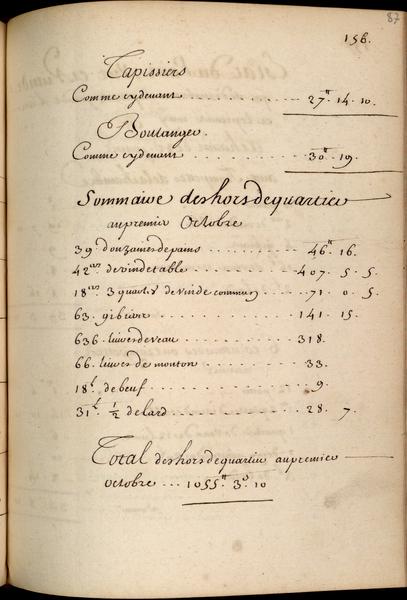 87
156.
Tapissiers
Comme cydevant . . . . . . . . . . 27.tt 14. 10.
Boulanger.
Comme cydevant . . . . . . . . . 30.tt 19.
Sommaire deshorsdequartier
aupremier Octobre
39. douzaines de pains . . . . . . . . 46.tt 16.
42.ers devindetable . . . . . . . . 407. 5. 5.
18.ers 3 quart.s devinde commun . . . 71. 0. 5.
63. gibier . . . . . . . . . . . 141. 15.
636. livres de veau . . . . . . . . 318.
66. livres de mouton . . . . . . . 33.
18.l de beuf . . . . . . . . . . . . 9.
31.l 1/2 de lard . . . . . . . . . . 28. 7.
Total deshorsdequartier aupremier
octobre . . . 1055.tt 3.s 10